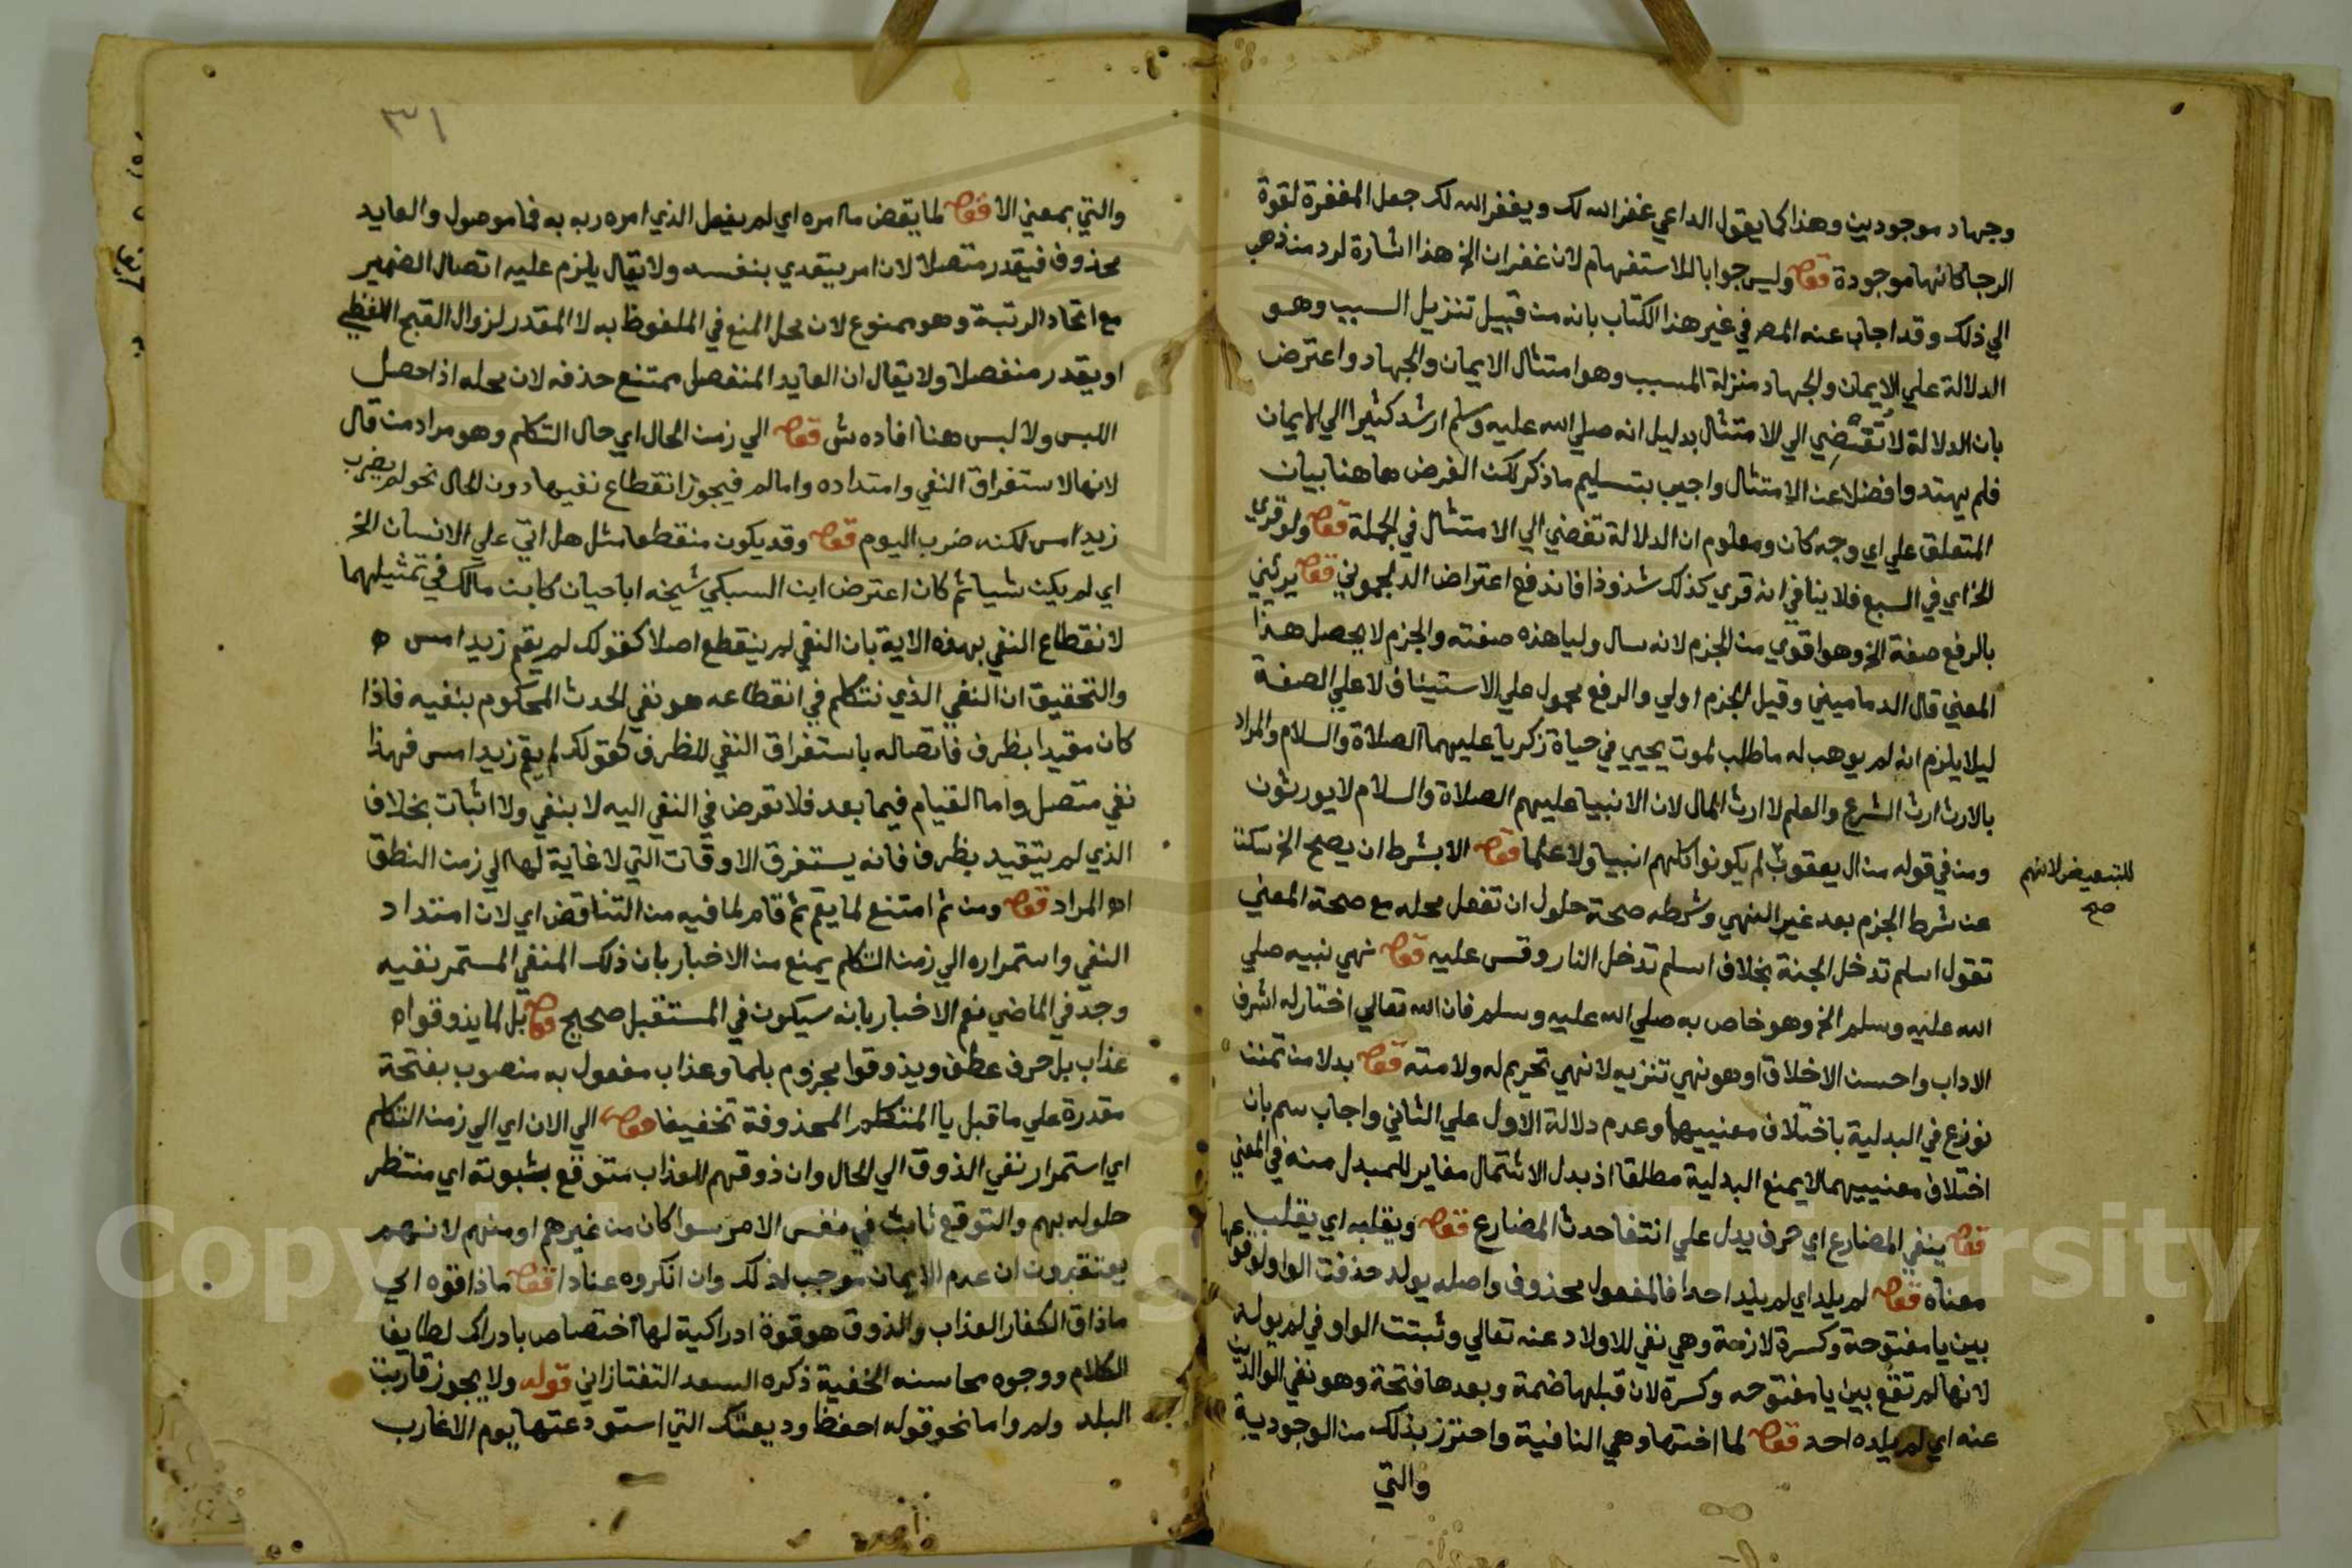 وجهاد موجودين وهذا كما يقول الداعي غفر الله لك ويغفر الله لك جعل المغفرة لقوة
الرجا كانها موجودة قوله وليس جوابا للاستفهام لان غفران الخ هذا اشارة لرد من ذهب
الي ذلك وقد اجاب عنه المص في غير هذا الكتاب بانه من قبيل تنزيل السبب وهو
الدلالة علي الايمان والجهاد منزلة المسبب وهو امتثال الايمان والجهاد واعترض
بان الدلالة لا تقتضي الي الامتثال بدليل انه صلي الله عليه وسلم ارشد كثيرا الي الايمان
فلم يهتدوا فضلا عن الامتثال واجيب بتسليم ما ذكر لكن الغرض هاهنا بيان
المتعلق علي اي وجه كان ومعلوم ان الدلالة تفضي الي الامتثال في الجملة قوله ولو قري
الخ اي في السبع فلا ينافي انه قري كذلك شذوذا فاندفع اعتراض الدلجموني قوله يرثني
بالرفع صفة الخ وهو اقوي من الجزم لانه سال وليا هذه صفته والجزم لا يحصل هذا
المعني قال الدماميني وقيل الجزم اولي والرفع محمول علي الاستيناف لا علي الصفة
ليلا يلزم انه لم يوهب له ما طلب لموت يحيي في حياة زكريا عليهما الصلاة والسلام والمراد
بالارث ارث الشرع والعلم لا ارث المال لان الانبيا عليهم الصلاة والسلام لا يورثون
ومن في قوله من ال يعقوب لم يكونوا كلهم انبيا ولا علما قوله الا بشرط ان يصح الخ سكت
للتبعيض لانهم
صح
عن شرط الجزم بعد غير النهي وشرطه صحة حلول ان تفعل محله مع صحة المعني
تقول اسلم تدخل الجنة بخلاف اسلم تدخل النار وقس عليه قوله نهي نبيه صلي
الله عليه وسلم الخ وهو خاص به صلي الله عليه وسلم فان الله تعالي اختار له اشرف
الاداب واحسن الاخلاق او هو نهي تنزيه لا نهي تحريم له ولامته قوله بدلا من تمنن
نوزع في البدلية باختلاف معنييهما وعدم دلالة الاول علي الثاني واجاب سم بان
اختلاف معنييهما لا يمنع البدلية مطلقا اذ بدل الاشتمال مغاير للمبدل منه في المعني
قوله ينفي المضارع اي حرف يدل علي انتفا حدث المضارع قوله ويقلبه اي يقلب
معناه قوله لم يلد اي لم يلد احدا فالمفعول محذوف واصله يولد حذفت الواو لوقوعها
بين يا مفتوحة وكسرة لازمة وهي نفي للاولاد عنه تعالي وثبتت الواو في لم يولد
لانها لم تقع بين يا مفتوحه وكسرة لان قبلها ضمة وبعدها فتحة وهو نفي الوالدين
عنه اي لم يلده احد قوله لما اختها وهي النافية واحترز بذلك من الوجودية
والتي
٣١
والتي بمعني الا قوله لما يقض ما امره اي لم يفعل الذي امره ربه به فما موصول والعايد
محذوف فيقدر متصلا لان امر يتعدي بنفسه ولا يقال يلزم عليه اتصال الضمير
مع اتحاد الرتبة وهو ممنوع لان محل المنع في الملفوظ به لا المقدر لزوال القبح اللفظي
او يقدر منفصلا ولا يقال ان العايد المنفصل ممتنع حذفه لان محله اذا حصل
اللبس ولا لبس هنا افاده ش قوله الي زمن الحال اي حال التكلم وهو مراد من قال
لانها لاستغراق النفي وامتداده واما لم فيجوز انقطاع نفيها دون الحال نحو لم يضرب
زيد امس لكنه ضرب اليوم قوله وقد يكون منقطعا مثل هل اتي علي الانسان الخ
اي لم يكن شيا ثم كان اعترض ابن السبكي شيخه ابا حيان كابن مالك في تمثيلهما
لانقطاع النفي بهذه الاية بان النفي لم ينقطع اصلا كقولك لم يقم زيد امس
والتحقيق ان النفي الذي نتكلم في انقطاعه هو نفي الحدث المحكوم بنفيه فاذا
كان مقيدا بظرف فاتصاله باستغراق النفي للظرف كقولك لم يقم زيد امس فهذا
نفي متصل واما القيام فيما بعد فلا تعرض في النفي اليه لا بنفي ولا اثبات بخلاف
الذي لم يتقيد بظرف فانه يستغرق الاوقات التي لا غاية لها الي زمن النطق
اه المراد قوله ومن ثم امتنع لما يقم ثم قام لما فيه من التناقض اي لان امتداد
النفي واستمراره الي زمن التكلم يمنع من الاخبار بان ذلك المنفي المستمر نفيه
وجد في الماضي نعم الاخبار بانه سيكون في المستقبل صحيح قوله بل لما يذوقوا
عذاب بل حرف عطف ويذوقوا مجزوم بلما وعذاب مفعول به منصوب بفتحة
مقدرة علي ما قبل يا المتكلم المحذوفة تخفيفا قوله الي الان اي الي زمن التكلم
اي استمرار نفي الذوق الي الحال وان ذوقهم للعذاب متوقع بثبوته اي منتظر
حلوله بهم والتوقع ثابت في نفس الامر سوا كان من غيرهم او منهم لانهم
يعتقدون ان عدم الايمان موجب لذلك وان انكروه عنادا قوله ما ذاقوه اي
ما ذاق الكفار العذاب والذوق هو قوة ادراكية لها اختصاص بادراك لطايف
الكلام ووجوه محاسنه الخفية ذكره السعد التفتازاني قوله ولا يجوز قاربت
البلد ولم واما نحو قوله احفظ وديعتك التي استودعتها يوم الاغارب